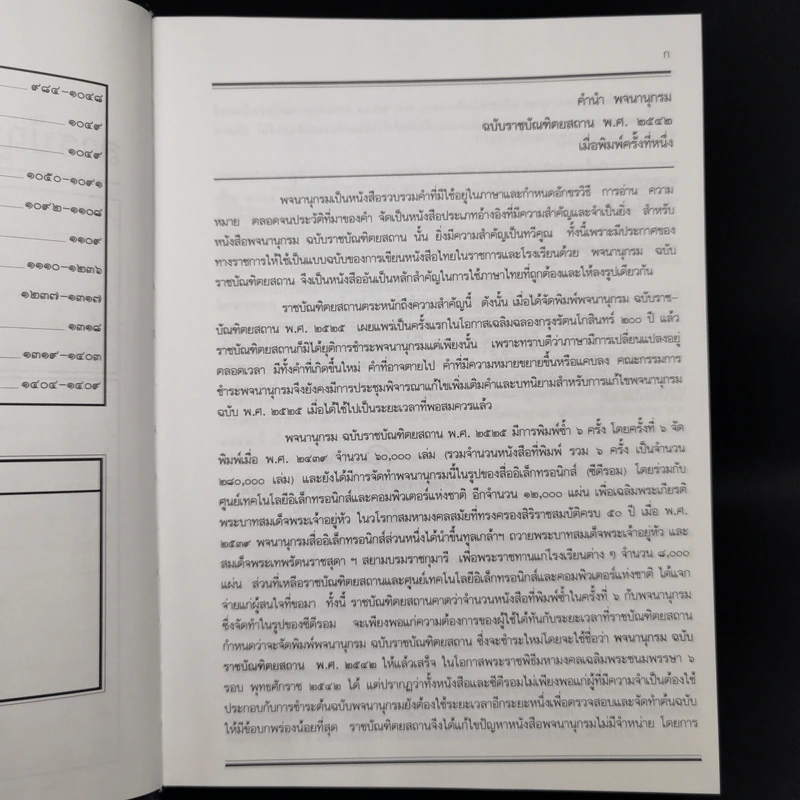 ๙๘๔-๑๐๔๘
๑๐๔๙
๑๐๔๙
๑๐๕๐-๑๐๙๑
๑๐๙๒-๑๑๐๘
๑๑๐๙
๑๑๑๐-๑๒๓๖
๑๒๓๗-๑๓๑๗
๑๓๑๘
๑๓๑๙-๑๔๐๓
๑๔๐๔-๑๔๐๙
ก
คำนำ พจนานุกรม
ฉบับราชบัณฑิตยสถาน พ.ศ. ๒๕๔๒
เมื่อพิมพ์ครั้งที่หนึ่ง
พจนานุกรมเป็นหนังสือรวบรวมคำที่มีใช้อยู่ในภาษาและกำหนดอักขรวิธี การอ่าน ความ
หมาย ตลอดจนประวัติที่มาของคำ จัดเป็นหนังสือประเภทอ้างอิงที่มีความสำคัญและจำเป็นยิ่ง สำหรับ
หนังสือพจนานุกรม ฉบับราชบัณฑิตยสถาน นั้น ยิ่งมีความสำคัญเป็นทวีคูณ ทั้งนี้เพราะมีประกาศของ
ทางราชการให้ใช้เป็นแบบฉบับของการเขียนหนังสือไทยในราชการและโรงเรียนด้วย พจนานุกรม ฉบับ
ราชบัณฑิตยสถาน จึงเป็นหนังสืออันเป็นหลักสำคัญในการใช้ภาษาไทยที่ถูกต้องและให้ลงรูปเดียวกัน
ราชบัณฑิตยสถานตระหนักถึงความสำคัญนี้ ดังนั้น เมื่อได้จัดพิมพ์พจนานุกรม ฉบับราช-
บัณฑิตยสถาน พ.ศ. ๒๕๒๕ เผยแพร่เป็นครั้งแรกในโอกาสเฉลิมฉลองกรุงรัตนโกสินทร์ ๒๐๐ ปี แล้ว
ราชบัณฑิตยสถานก็มิได้ยุติการชำระพจนานุกรมแต่เพียงนั้น เพราะทราบดีว่าภาษามีการเปลี่ยนแปลงอยู่
ตลอดเวลา มีทั้งคำที่เกิดขึ้นใหม่ คำที่อาจตายไป คำที่มีความหมายขยายขึ้นหรือแคบลง คณะกรรมการ
ชำระพจนานุกรมจึงยังคงมีการประชุมพิจารณาแก้ไขเพิ่มเติมคำและบทนิยามสำหรับการแก้ไขพจนานุกรม
ฉบับ พ.ศ. ๒๕๒๕ เมื่อได้ใช้ไปเป็นระยะเวลาที่พอสมควรแล้ว
พจนานุกรม ฉบับราชบัณฑิตยสถาน พ.ศ. ๒๕๒๕ มีการพิมพ์ซ้ำ ๖ ครั้ง โดยครั้งที่ ๖ จัด
พิมพ์เมื่อ พ.ศ. ๒๔๓๙ จำนวน ๖๐,๐๐๐ เล่ม (รวมจำนวนหนังสือที่พิมพ์ รวม ๖ ครั้ง เป็นจำนวน
๒๘๐,๐๐๐ เล่ม) และยังได้มีการจัดทำพจนานุกรมนี้ในรูปของสื่ออิเล็กทรอนิกส์ (ซีดีรอม) โดยร่วมกับ
ศูนย์เทคโนโลยีอิเล็กทรอนิกส์และคอมพิวเตอร์แห่งชาติ อีกจำนวน ๑๒,๐๐๐ แผ่น เพื่อเฉลิมพระเกียรติ
พระบาทสมเด็จพระเจ้าอยู่หัว ในวโรกาสมหามงคลสมัยที่ทรงครองสิริราชสมบัติครบ ๕๐ ปี เมื่อ พ.ศ.
๒๕๓๙ พจนานุกรมสื่ออิเล็กทรอนิกส์ส่วนหนึ่งได้นำขึ้นทูลเกล้าฯ ถวายพระบาทสมเด็จพระเจ้าอยู่หัว และ
สมเด็จพระเทพรัตนราชสุดา ฯ สยามบรมราชกุมารี เพื่อพระราชทานแก่โรงเรียนต่าง ๆ จำนวน ๘,๐๐๐
แผ่น ส่วนที่เหลือราชบัณฑิตยสถานและศูนย์เทคโนโลยีอิเล็กทรอนิกส์และคอมพิวเตอร์แห่งชาติ ได้แจก
จ่ายแก่ผู้สนใจที่ขอมา ทั้งนี้ ราชบัณฑิตยสถานคาดว่าจำนวนหนังสือที่พิมพ์ซ้ำในครั้งที่ ๖ กับพจนานุกรม
ซึ่งจัดทำในรูปของซีดีรอม จะเพียงพอแก่ความต้องการของผู้ใช้ได้ทันกับระยะเวลาที่ราชบัณฑิตยสถาน
กำหนดว่าจะจัดพิมพ์พจนานุกรม ฉบับราชบัณฑิตยสถาน ซึ่งจะชำระใหม่โดยจะใช้ชื่อว่า พจนานุกรม ฉบับ
ราชบัณฑิตยสถาน พ.ศ. ๒๕๔๒ ให้แล้วเสร็จ ในโอกาสพระราชพิธีมหามงคลเฉลิมพระชนมพรรษา ๖
รอบ พุทธศักราช ๒๕๔๒ ได้ แต่ปรากฏว่าทั้งหนังสือและซีดีรอมไม่เพียงพอแก่ผู้ที่มีความจำเป็นต้องใช้
ประกอบกับการชำระต้นฉบับพจนานุกรมยังต้องใช้ระยะเวลาอีกระยะหนึ่งเพื่อตรวจสอบและจัดทำต้นฉบับ
ให้มีข้อบกพร่องน้อยที่สุด ราชบัณฑิตยสถานจึงได้แก้ไขปัญหาหนังสือพจนานุกรมไม่มีจำหน่าย โดยการ